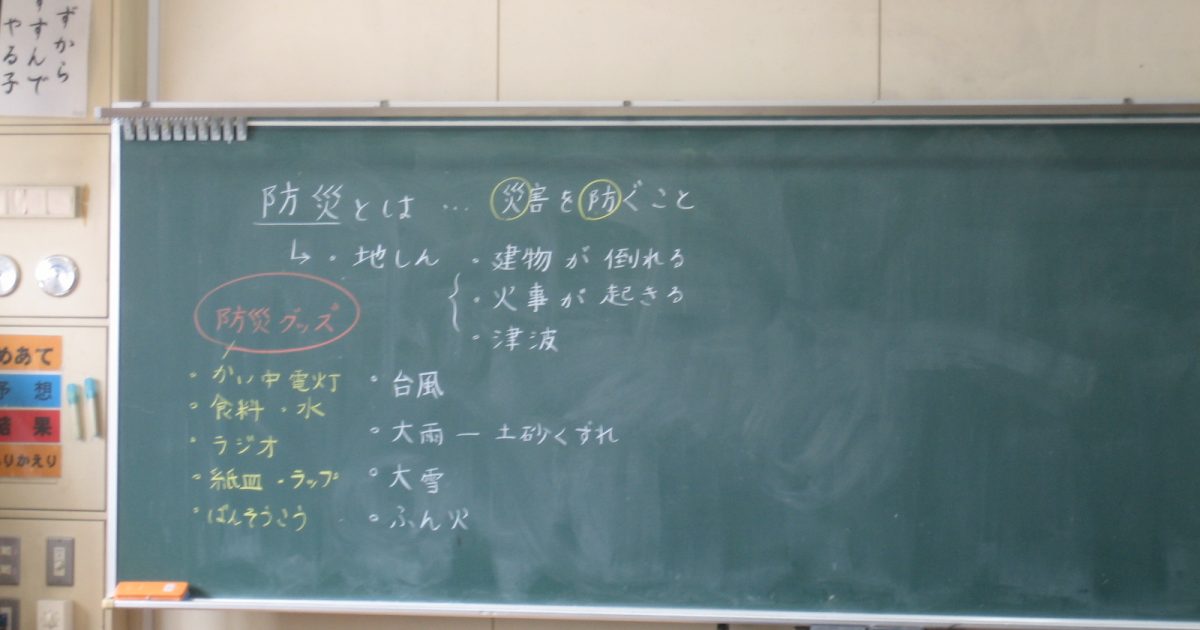 ずから
すすんで
やる子
防災とは … 災害を防ぐこと
↳・地しん ・建物が倒れる
・火事が起きる
・津波
防災グッズ
・かい中電灯
・食料・水
・ラジオ
・紙皿・ラップ
・ばんそうこう
・台風
・大雨 ー 土砂くずれ
・大雪
・ふん火
めあて
予想
結果
ふりかえり